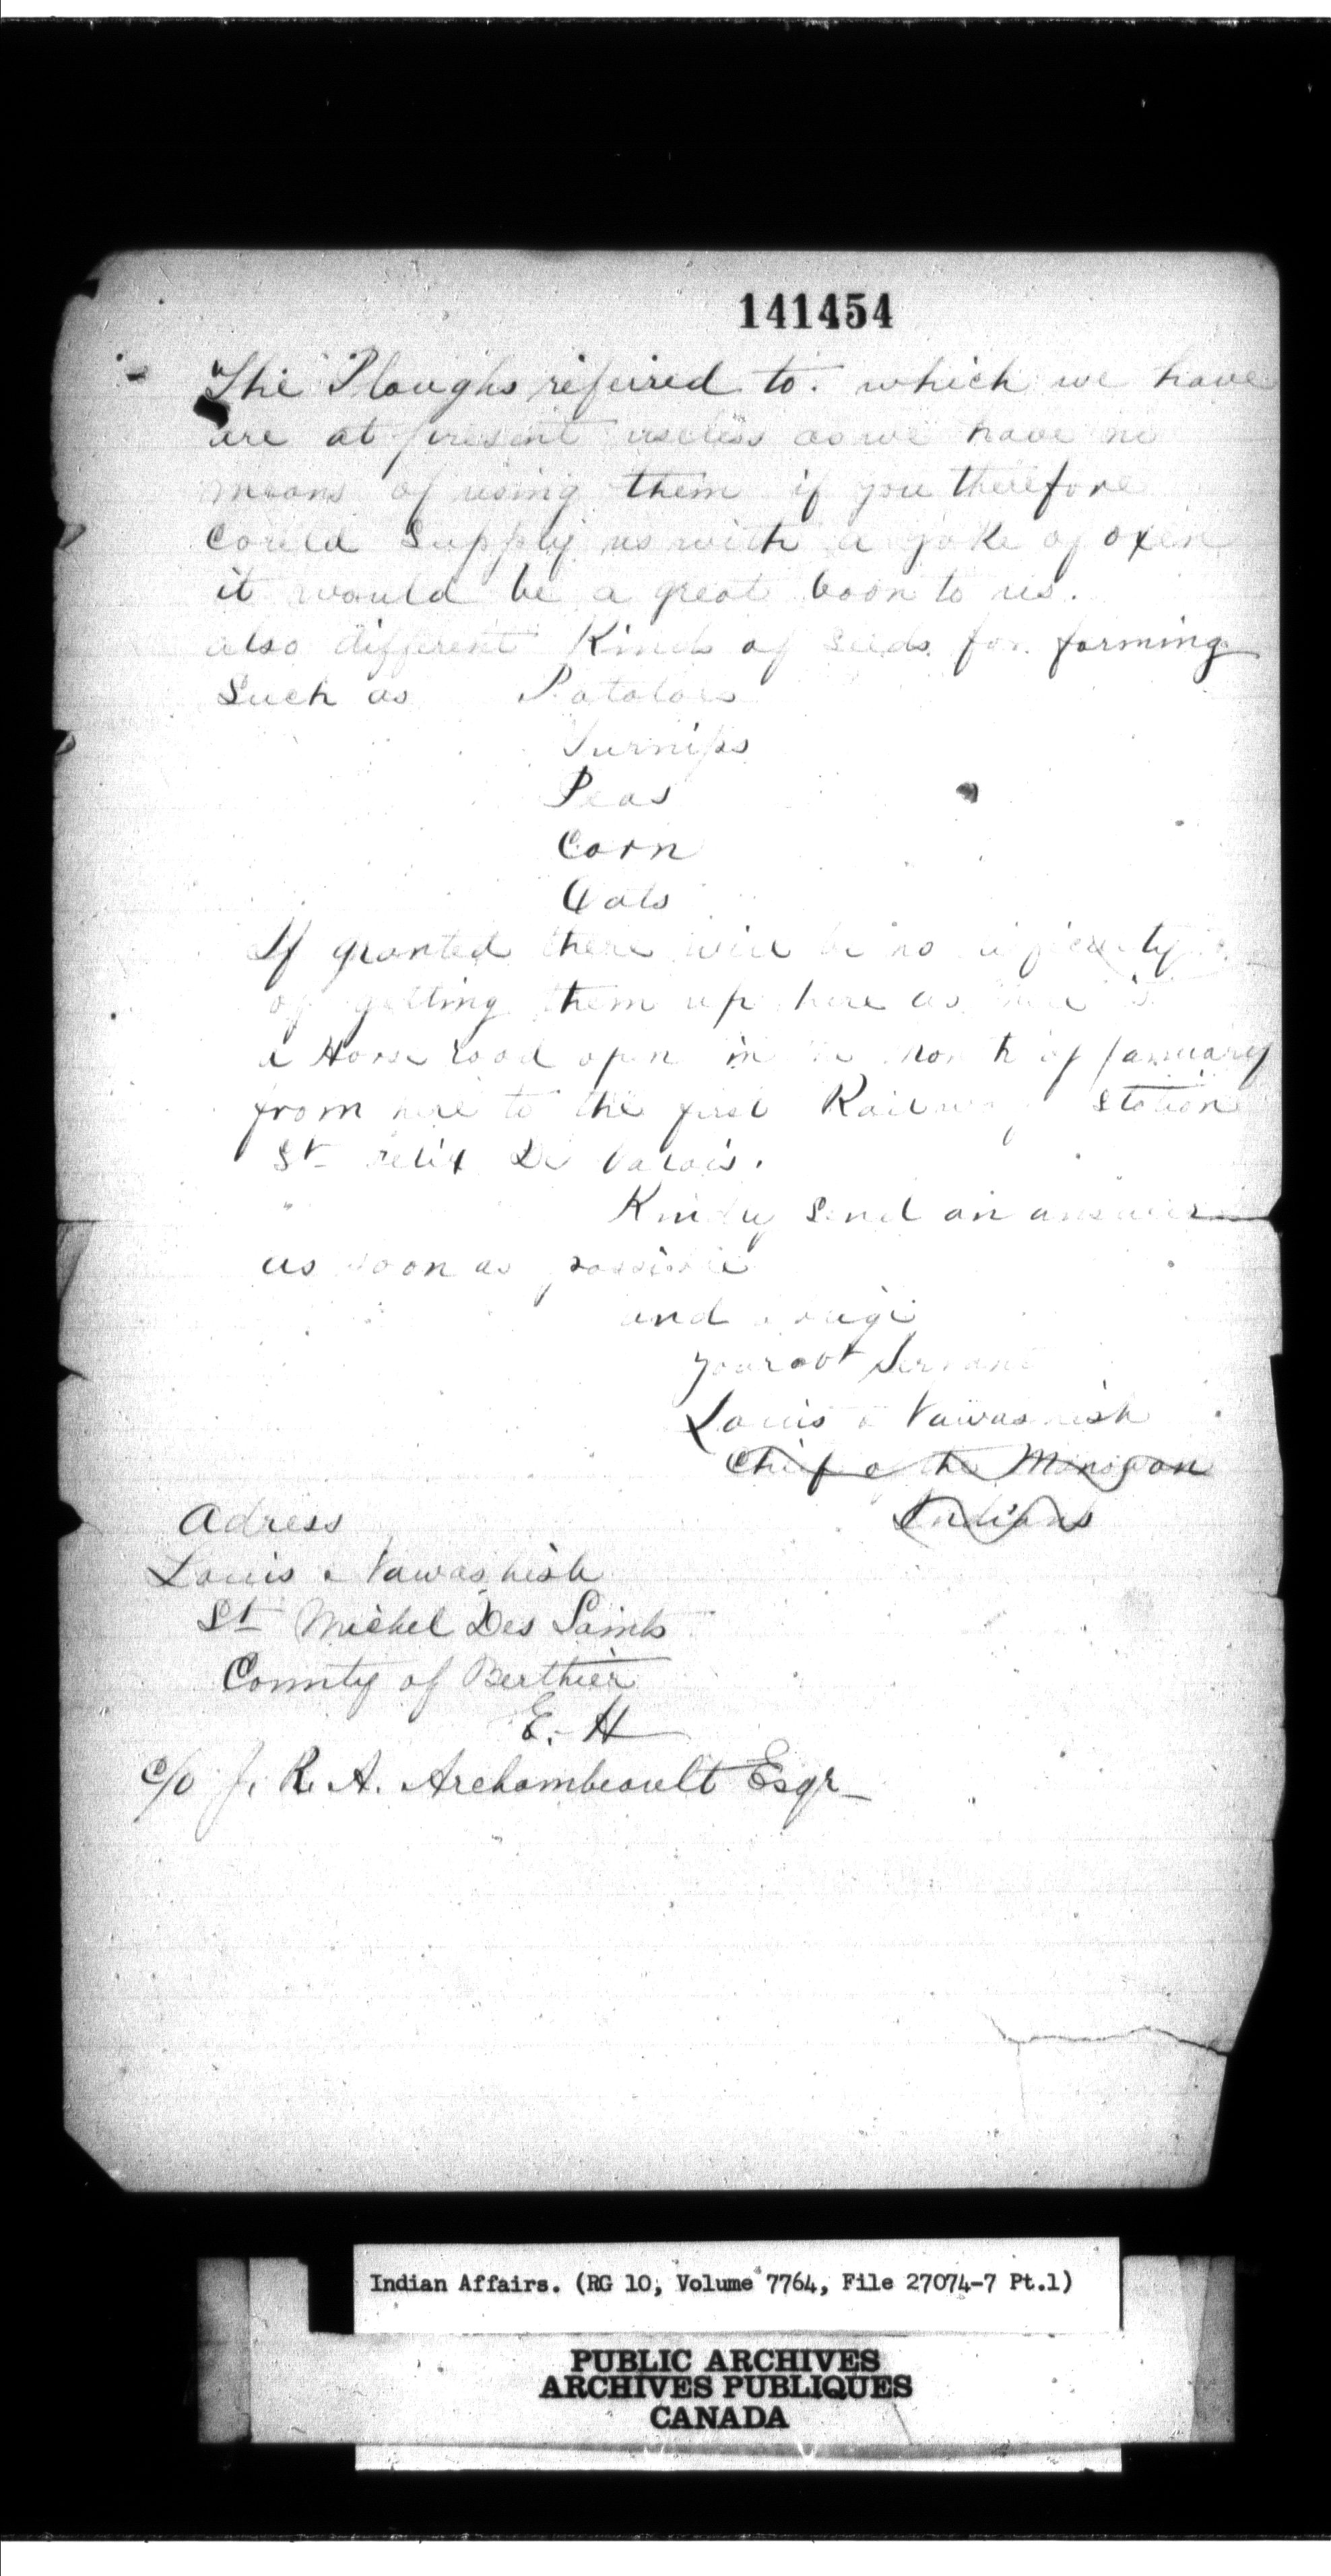 141454
The Ploughs refeired to. which we have
are at present useless as we have no
means of using them if you therefore
Could Supply us with a yoke of oxen
it would be a great boon to us.
also different Kinds of Seeds for farming
Such as Potatoes
Turnips
Peas
Corn
Oats
If granted there will be no
of getting them up here as is
a Horse road open in the month of January
from here to the first Railway station
St Felix De Valois.
Kindly Send an answer
as soon as possible
and
your obt Servant
Louis Nawashish
Chief of the Manowan
Indians
Adress
Louis Nawashish
St Michel Des Saints
County of Berthier
E. H
c/o J. R. A. Archambeault Esqr
Indian Affairs. (RG 10, Volume 7764, File 27074-7 Pt.1)
PUBLIC ARCHIVES
ARCHIVES PUBLIQUES
CANADA